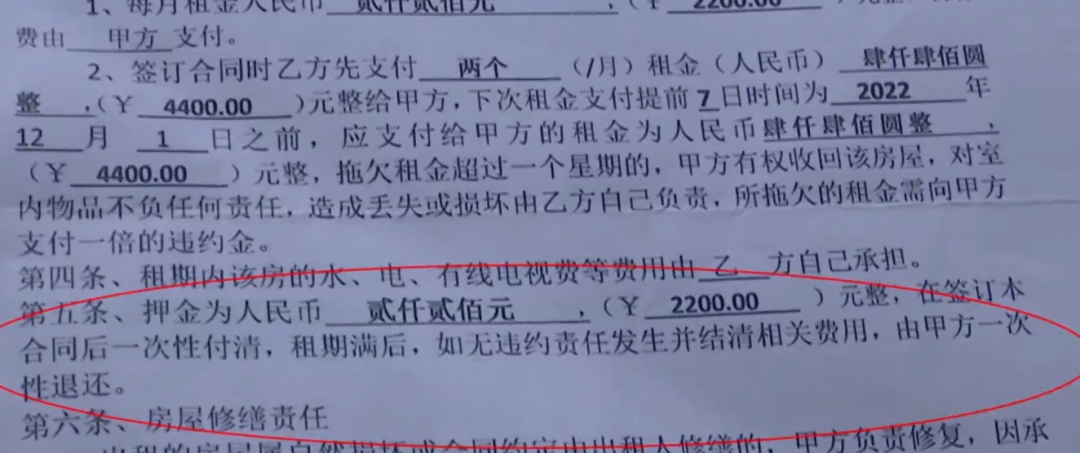 1、每月租金人民币 贰仟贰佰元 ,(￥ 2200.00
费由 甲方 支付。
2、签订合同时乙方先支付 两个 (/月)租金(人民币) 肆仟肆佰圆
整 ,(￥ 4400.00 )元整给甲方,下次租金支付提前 7 日时间为 2022 年
12 月 1 日之前,应支付给甲方的租金为人民币肆仟肆佰圆整 ,
(￥ 4400.00 )元整,拖欠租金超过一个星期的,甲方有权收回该房屋,对室
内物品不负任何责任,造成丢失或损坏由乙方自己负责,所拖欠的租金需向甲方
支付一倍的违约金。
第四条、租期内该房的水、电、有线电视费等费用由 乙 方自己承担。
第五条、押金为人民币 贰仟贰佰元 ,(￥ 2200.00 )元整,在签订本
合同后一次性付清,租期满后,如无违约责任发生并结清相关费用,由甲方一次
性退还。
第六条、房屋修缮责任
出租的房屋属自然损坏或合同约定由出租人修缮的,甲方负责修复,因承